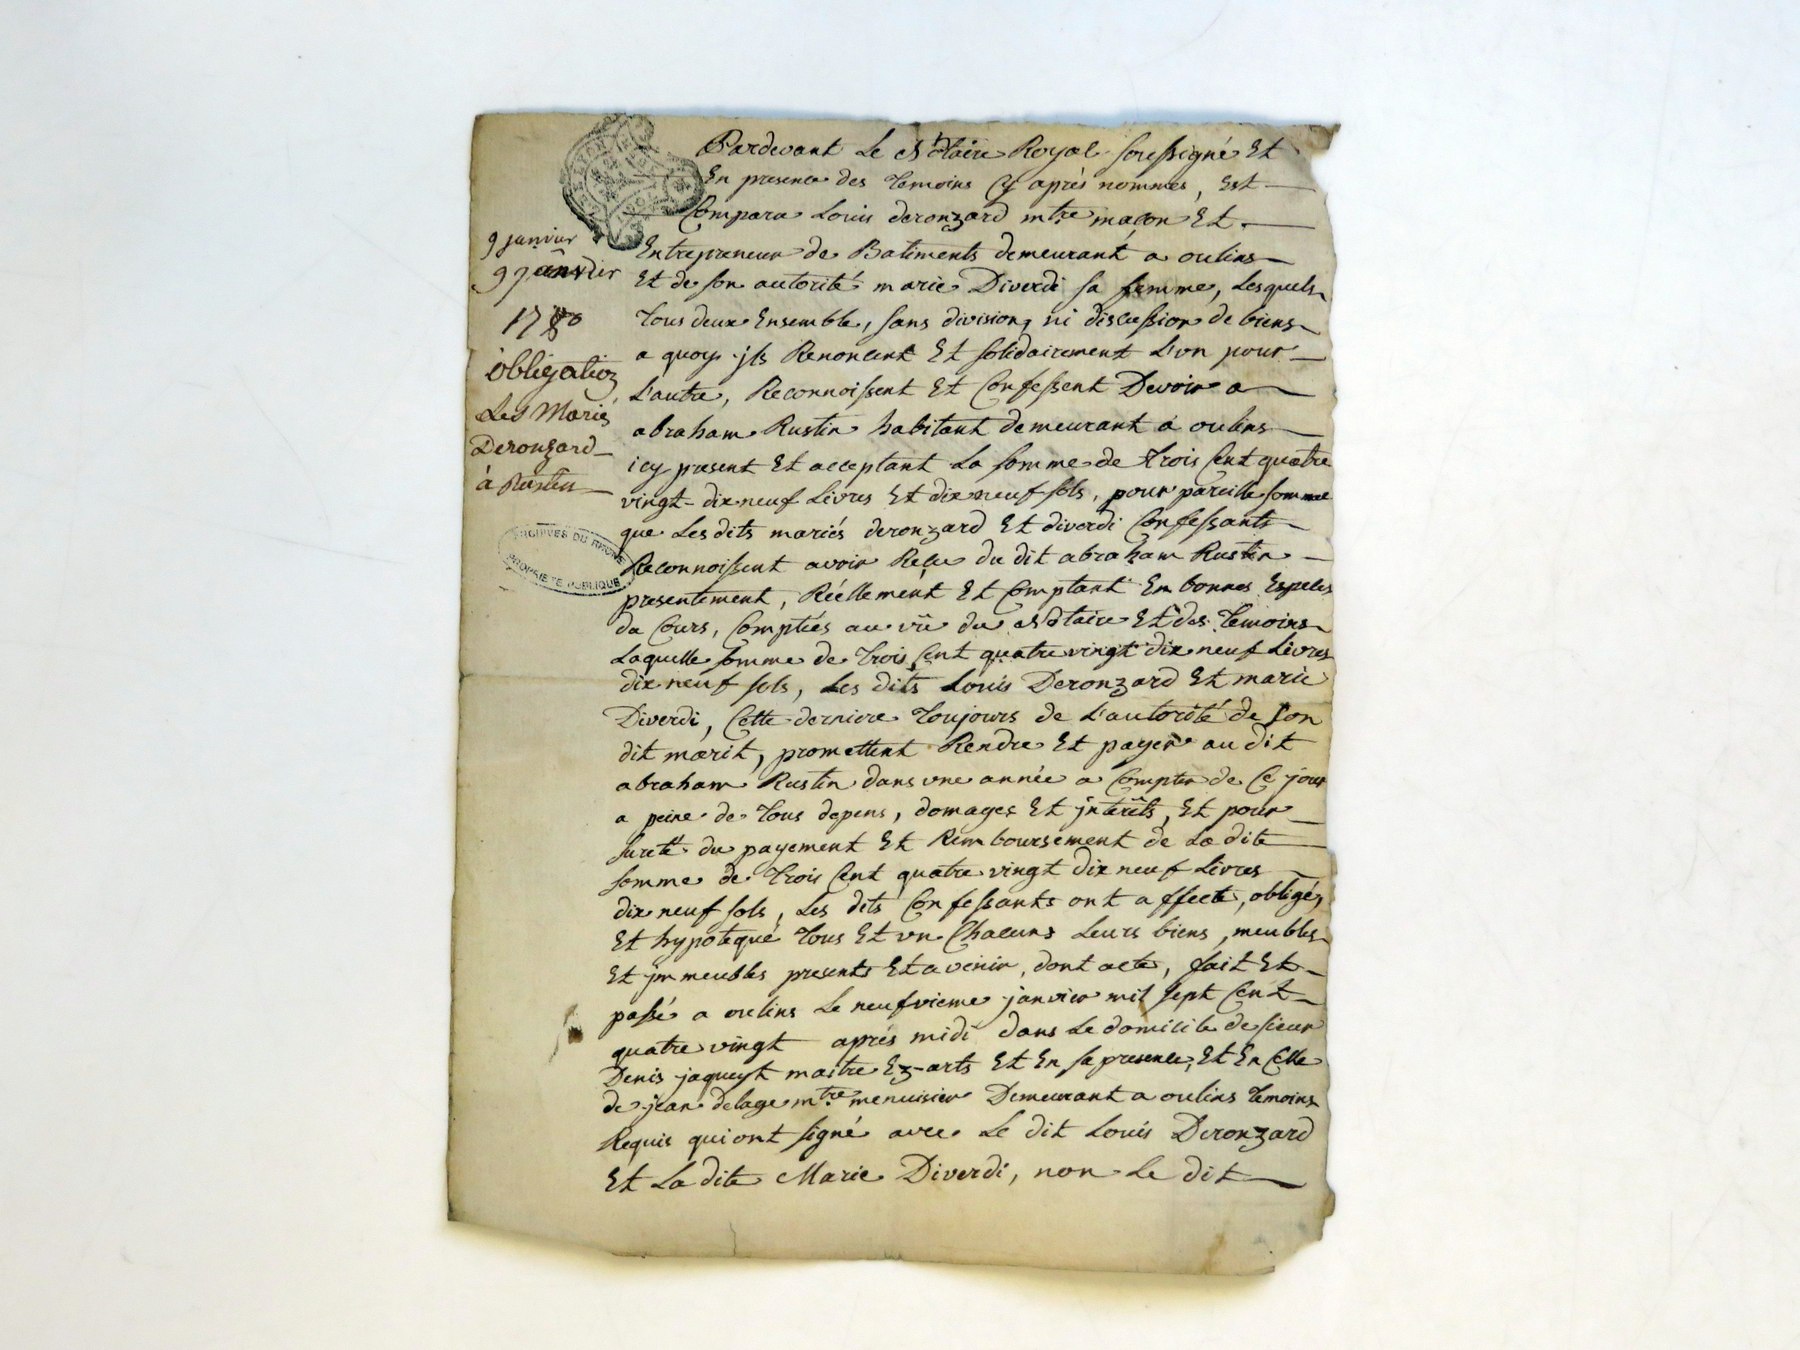 Pardevant Le Notaire Royal soussigné Et
En presence des temoins Cy après nommés, Est
Compara Louis deronzard mtre maçon Et
Entrepreneur de Batiments demeurant a oulins
Et de son autorité marie Diverdi sa femme, Lesquels
tous deux Ensemble, sans division, ni discussion de biens
a quoy jls Renoncent Et solidairement L'un pour
L'autre, Reconnoissent Et Confessent Devoir a
abraham Rustin habitant demeurant à oulins
icy present Et acceptant La somme de trois Cent quatre
vingt-dix neuf Livres Et dix neuf sols, pour pareille somme
que Lesdits mariés deronzard Et diverdi Confessants
Reconnoissent avoir Reçu du dit abraham Rustin
presentement, Réellement Et Comptant En bonnes Especes
da Cours, Comptées au vû du Notaire Et des temoins
Laquelle somme de trois Cent quatre vingt dix neuf Livres
dix neuf sols, Les dits Louis Deronzard Et marie
Diverdi, Cette derniere toujours de L'autorité de son
dit marit, promettent Rendre Et payer au dit
abraham Rustin dans une année a Compter de Ce jour
a peine de tous depens, domages Et jnterêts, Et pour
sureté du payement Et Remboursement de La dite
somme de trois Cent quatre vingt dix neuf Livres
dix neuf sols, Les dits Confessants ont affecté, obligé,
Et hypotequé tous Et un Chacuns Leurs biens, meubles
Et jmmeubles presents Et avenir, dont acte, fait Et
passé a oulins Le neufvieme janvier mil sept Cent
quatre vingt après midi dans Le domicile de sieur
Denis jaqueyt maitre Ez-arts Et En sa presence, Et En Celle
de jean delage mtre menuisier Demeurant a oulins temoins
Requis qui ont signé avec Le dit Louis Deronzard
Et La dite Marie Diverdi, non Le dit
9 janvier
9 janvier
1780
obligation
Les Mariés
Deronzard
à Rustin
ARCHIVES DU RHONE
PROPRIETE PUBLIQUE